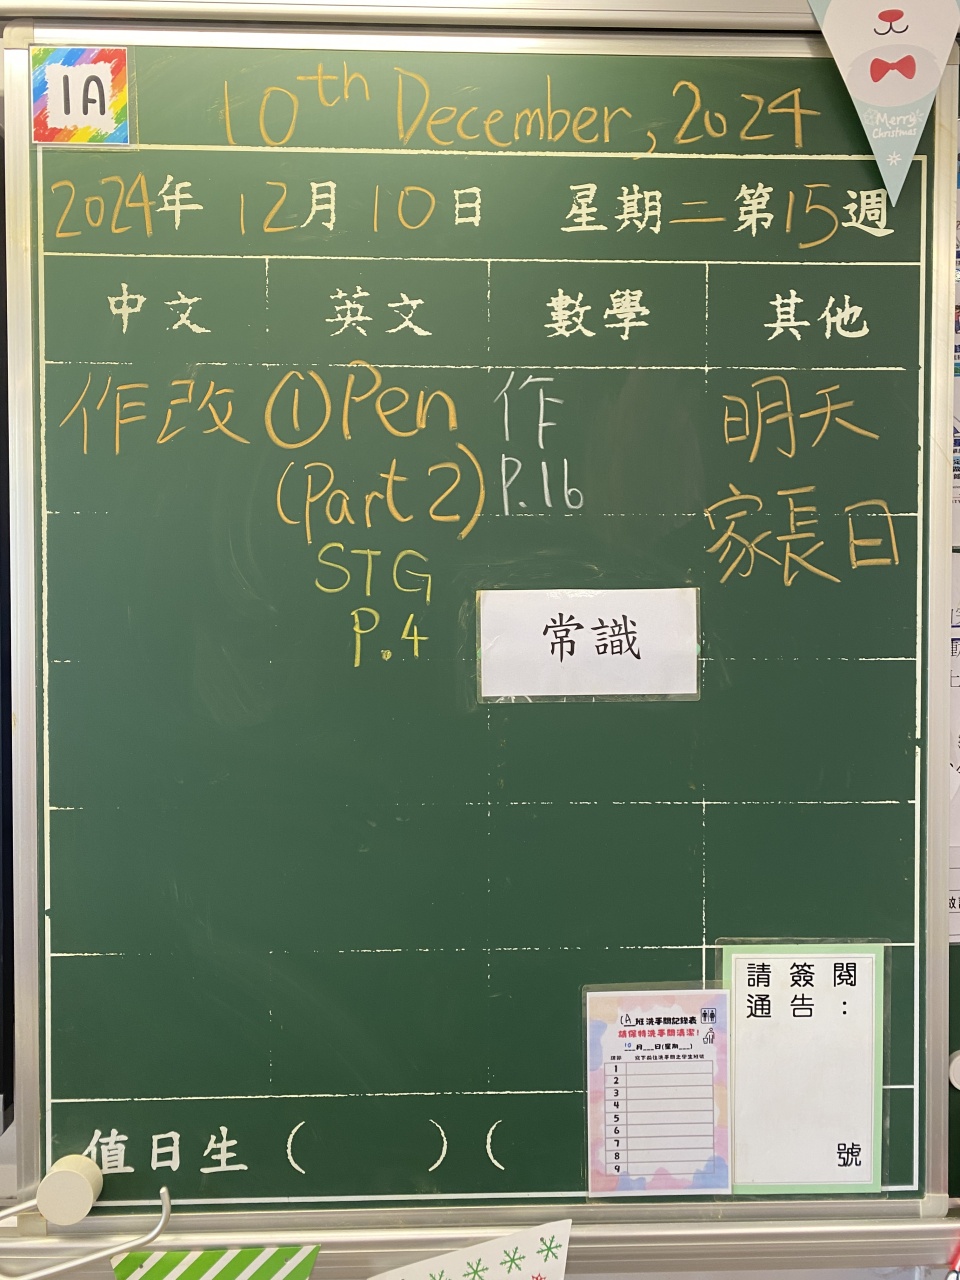 1A
10th December, 2024
Merry
Christmas
2024年 12月 10日 星期二 第15週
中文 英文 數學 其他
作改
① Pen
(Part 2)
STG
P.4
作
P.16
明天
家長日
常識
請簽閱
通告：
號
1A班洗手間記錄表
請保持洗手間清潔!
10月___日(星期___)
1
2
3
4
5
6
7
8
9
值日生 ( ) (